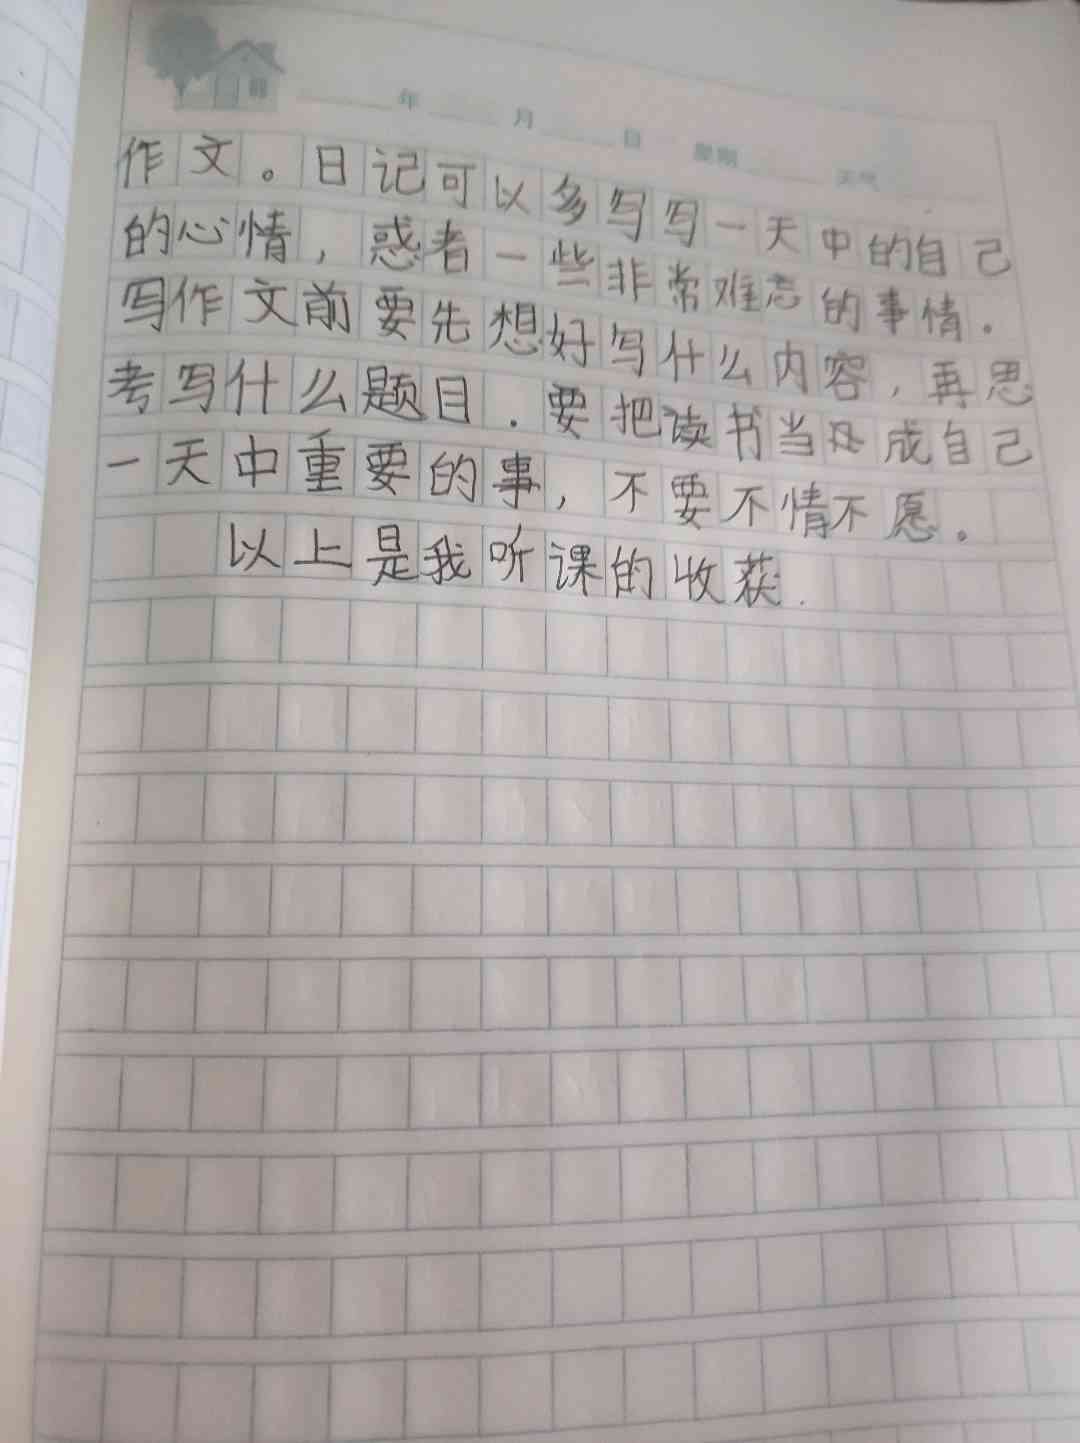 年 月 日 星期 天气
作文。日记可以多写写一天中的自己
的心情，惑者一些非常难忘的事情。
写作文前要先想好写什么内容，再思
考写什么题目.要把读书当成自己
一天中重要的事，不要不情不愿。
以上是我听课的收获.